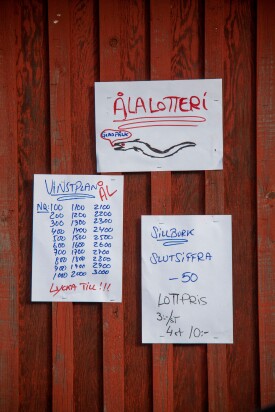 ÅLALOTTERI
VINSTPLAN
ÅL
NR: 100 1100 2100
200 1200 2200
300 1300 2300
400 1400 2400
500 1500 2500
600 1600 2600
700 1700 2700
800 1800 2800
900 1900 2900
1000 2000 3000
LYCKA TILL!!!
SILLBURK
SLUTSIFFRA
-50
LOTTPRIS
3:-/ST
4st 10:-